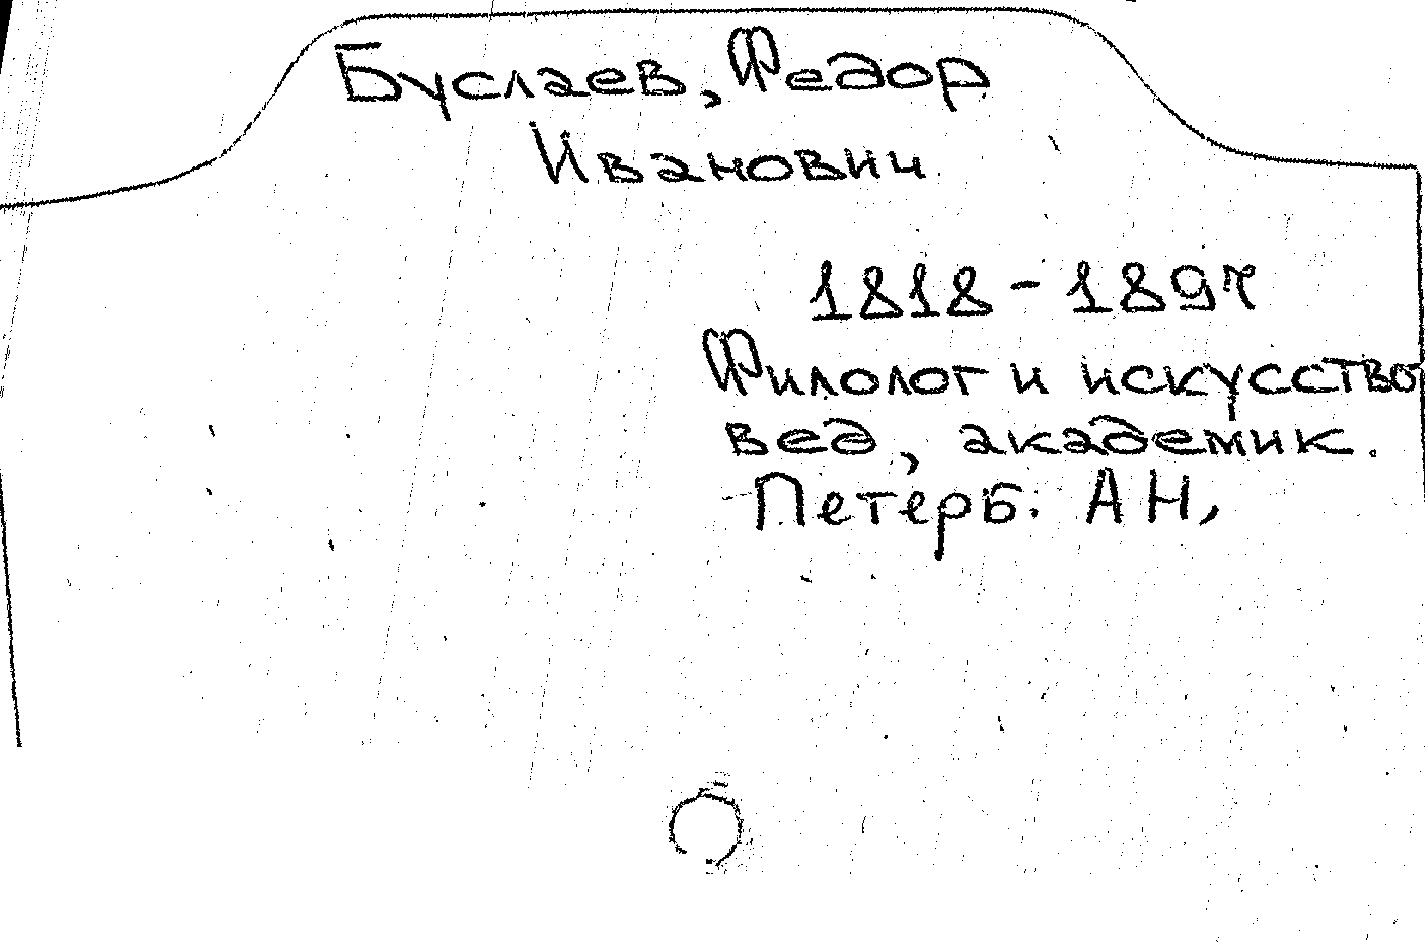 Буслаев, Федор
Иванович
1818-1897
Филолог и искусство
вед, академик.
Петерб. АН,